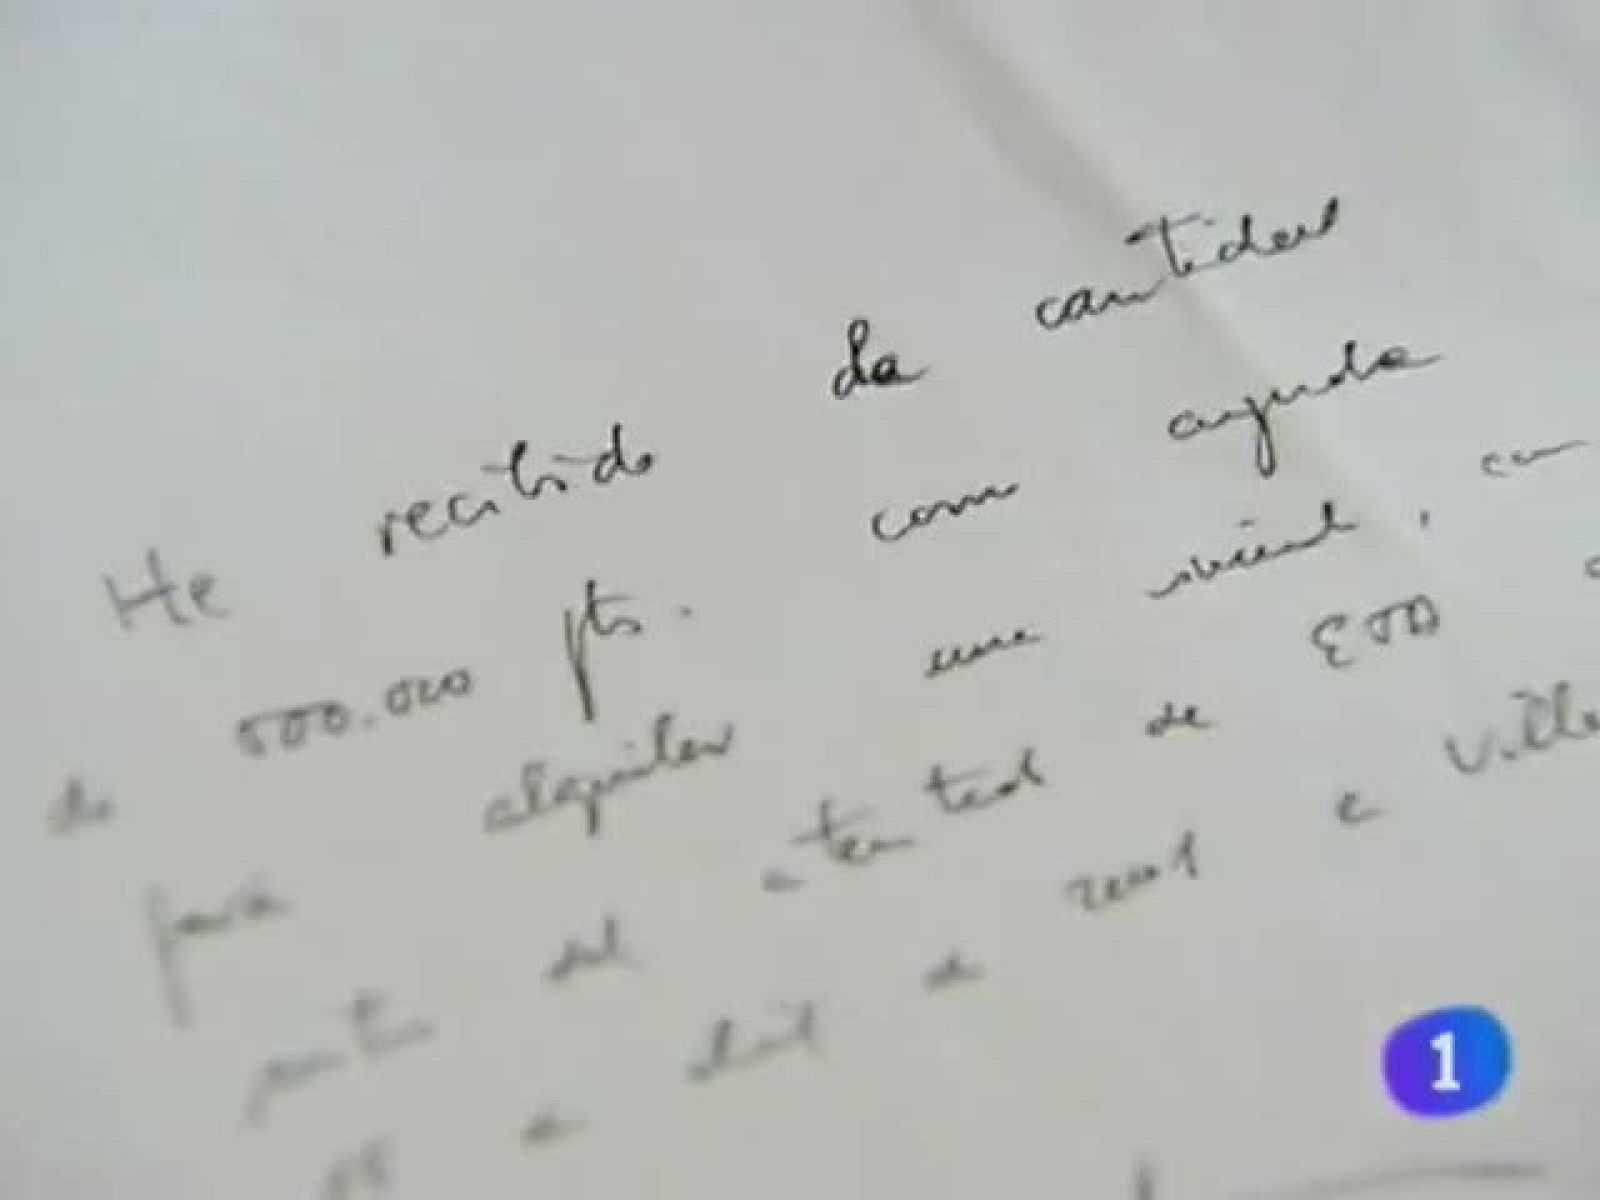 He recibido la cantidad
de 500.000 pts. como ayuda
para alquilar una vivienda, en
del atentado de ETA
de abril de en
1